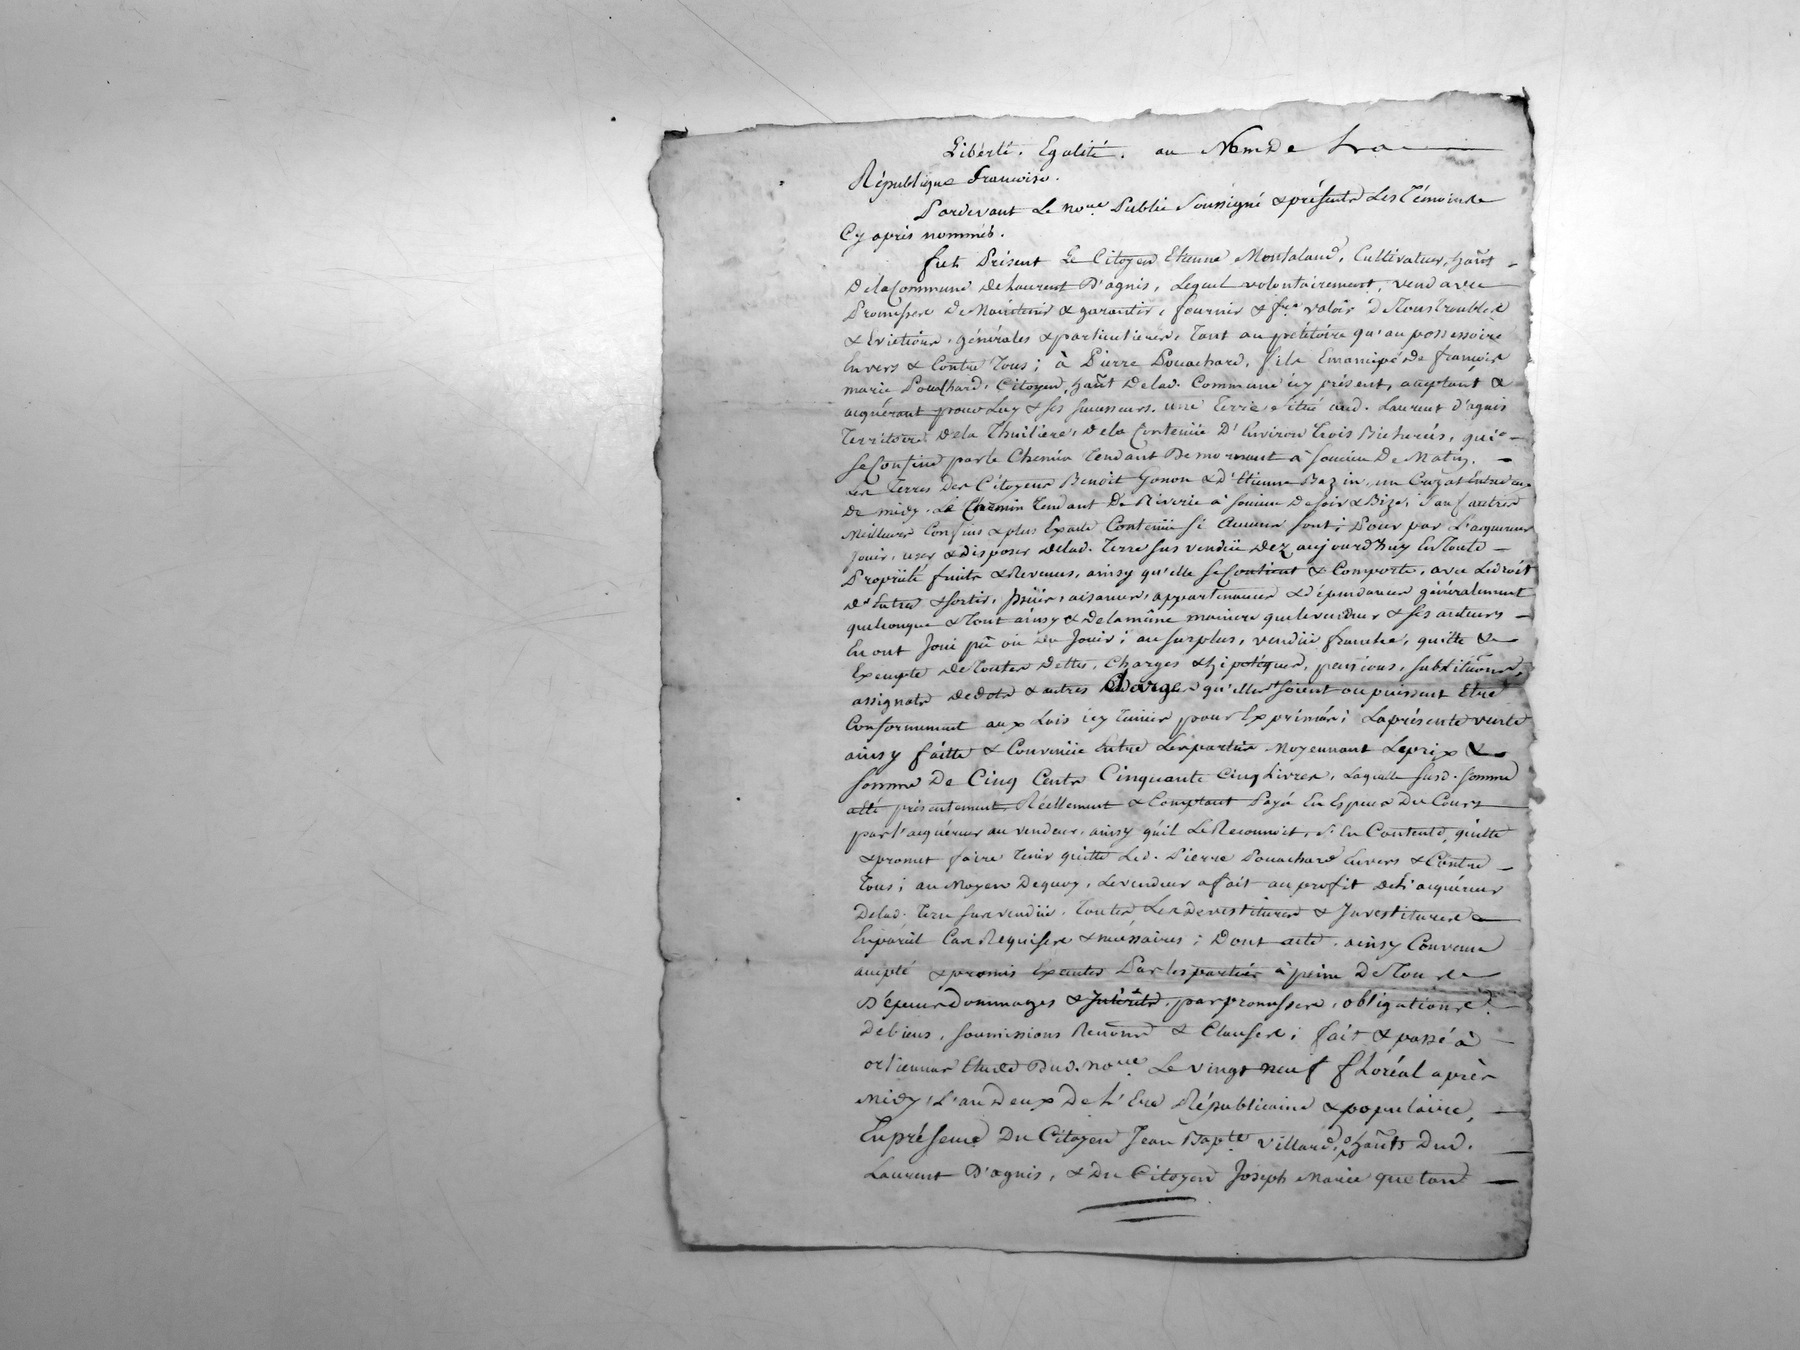 Liberté, Egalité, au Nom De La
République francoise.
Pardevant Le no.re Public Soussigné & présents Les Témoins
Cy après nommés.
fut Présent Le Citoyen Etienne Montaland, Cultivateur, hañt
De la Commune de Laurent D'agnis, Lequel volontairement, vend avec
Promesse De Maintenir & garantir, fournir & f.re valoir De Tous troubles
& Evictions, générales & particulieres, Tant au petitoire qu'au possessoire
Envers & Contre Tous; à Pierre Pouachard, fils Emancipé de françois
marie Pouachard, Citoyen, hañt De lad. Commune icy présent, acceptant &
acquérant pour Luy & ses successeurs, une Terre située aud. Laurent d'agnis
Territoire De la Thuiliere, De la Contenüe D'Environ Trois Bicherées, qui
se Confine par le Chemin Tendant De mornant à soucieu De Matin,
Les Terres Des Citoyens Benoit Gonon & d'Etienne Bazin, un Entre deux
De midy, Le Chemin Tendant De Riverie à soucieu De soir & Bize, sauf autres
Meilleurs Confins & plus Exacte Contenüe si Aucuns sont; Pour par L'acquereur
Jouir, user & disposer De lad. Terre sus vendüe Dez aujourd'huy En Toute
Propriété fruits & Revenus, ainsy qu'elle se Contient & Comporte, avec Le droit
D'Entrée & sortie, aisances, appartenances & dépendances généralement
quelconque & Tout ainsy & De la même maniere que le vendeur & ses auteurs
En ont Joui pû ou dû Jouir; au surplus, vendüe franche, quitte &
Exempte De Toutes Dettes, Charges & hipotéques, pensions, substitüons,
assignats De dots & autres Charges qu'elles soient ou puissent Etre
Conformement aux Lois icy Tenües pour Exprimées; La présente vente
ainsy faitte & Convenüe Entre Les parties Moyennant Le prix &
somme De Cinq Cents Cinquante Cinq Livres, Laquelle susd. somme
a été présentement, Réellement & Comptant Payé En Especes Du Cours
par l'acquéreur au vendeur, ainsy qu'il Le Reconnoit, s'En Contente, quitte
& promet faire Tenir quitte Led. Pierre Pouachard Envers & Contre
Tous; au Moyen De quoy, Le vendeur a fait au profit De L'acquéreur
De lad. Terre sus vendüe, Toutes Les Devestitures & Investitures
En pareil Cas Requises & nécéssaires; Dont acte, ainsy Convenu
accepté & promis Executer Par les parties à peine De Tous
Dépens Dommages & Interêts, par promesses, obligations
de biens, soumissions Renons & Clauses; fait & passé à
orlienas Etude Dud. no.re Le vingt neuf floréal après
Midy, L'an Deux De L'Ere Républicaine & populaire,
En présence Du Citoyen Jean Bap.te Villard, hañts Dud.
Laurent D'agnis, & Du Citoyen Joseph Marie